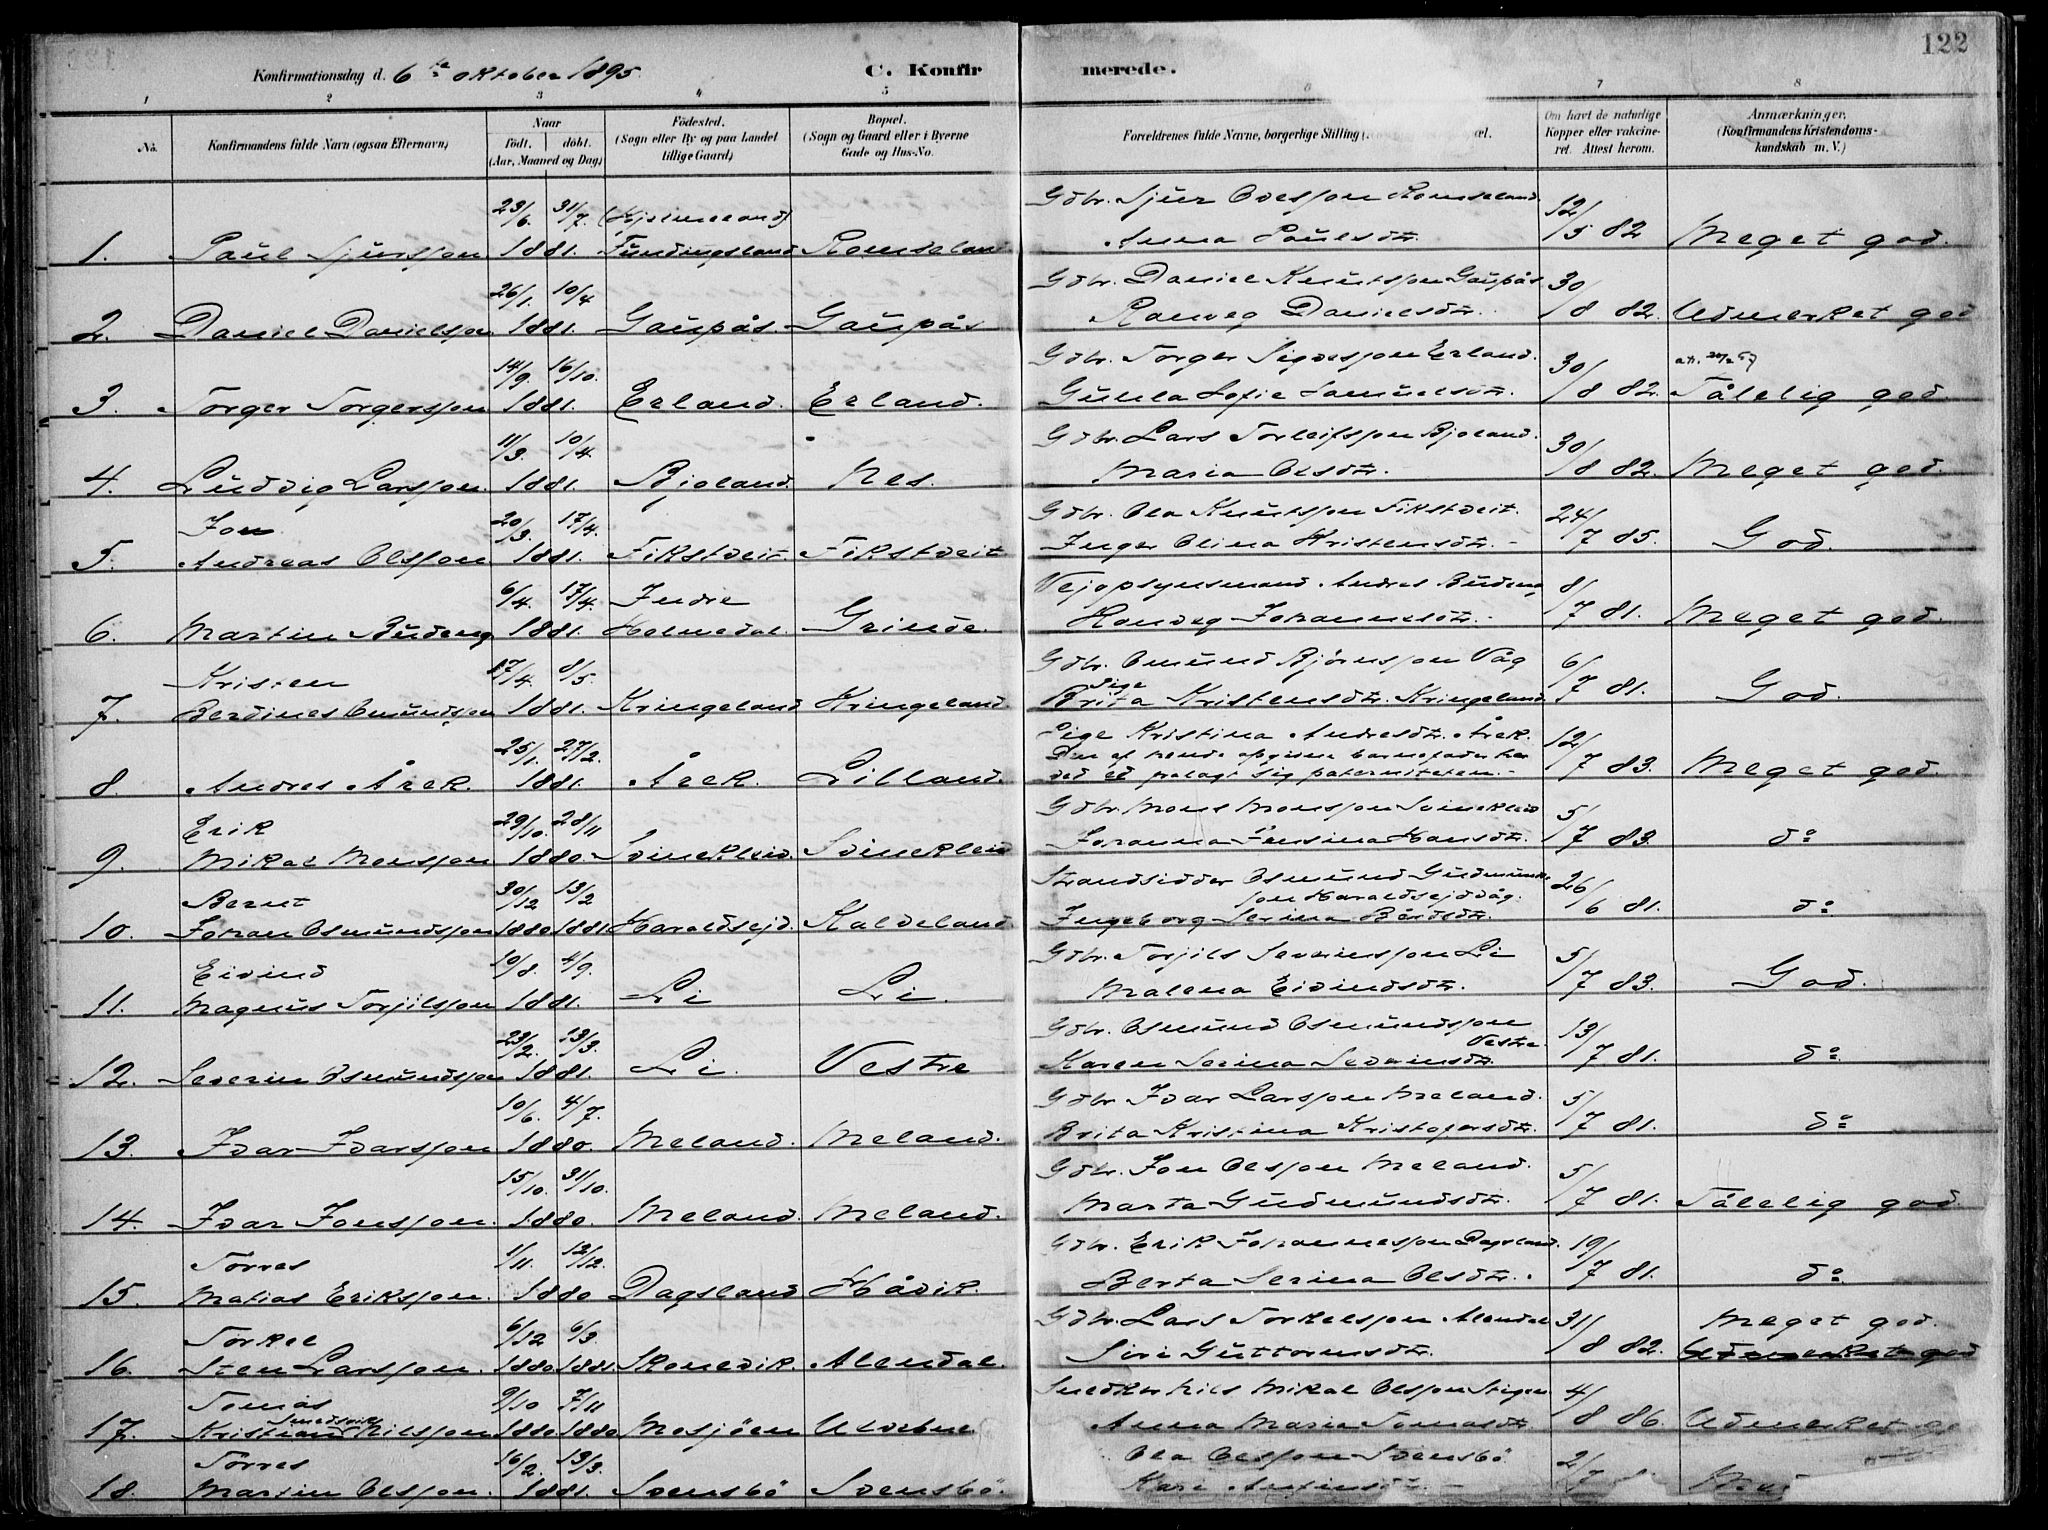 122
Konfirmationsdag d. 6te oktober 1895. C. Konfirmerede.
1 2 3 4 5 6 7 8
No. Konfirmandens fulde Navn (ogsaa Efternavn) Naar født. døbt. (Aar, Maaned og Dag) Fødested. (Sogn eller By og paa Landet tillige Gaard) Bopæl. (Sogn og Gaard eller i Byerne Gade og Hus-No. Forældrenes fulde Navne, borgerlige Stilling Om havt de naturlige Kopper eller vakcineret. Attest herom. Anmærkninger, (Konfirmandens Kristendomskundskab m. V.)
23/6. 31/7. Gdbr. Sjur
1. Paul Sjursson 1881. Fundingsland Romseland Anna Paulsdtr. 12/5 82 Meget god.
26/1. 10/4 Gdbr. Daniel Knutsson Gaupås
2. Daniel Danielsson 1881. Gaupås. Gaupås Danielsdtr. 30/8 82. Udmerket god
14/9. 16/10. Gdbr. Torger Erland.
3. Torger Torgersson 1881. Erland. Erland. Gunla Sofie Samuelsdtr. 30/8 82. Tålelig god.
11/3. 10/4. Gdbr. Lars Torleifsson Bjoland.
4. Ludvig Larsson. 1881. Bjoland. Nes. Maria Olsdtr. 30/8 82. Meget god.
Jon 20/3. 17/4. Gdbr. Ola Knutsson Fikstveit.
5. Andreas Olsson 1881. Fikstveit. Fikstveit Inger Olina Kristensdtr. 24/7 85. God.
6/4. 17/4. Indre Vejopsynsmand Andres Budeng
6. Martin Budeng 1881. Holmedal. Grinde. Johannesdtr. 8/7 81. Meget god.
Kristen 17/4. 8/5. Gdbr. Omund Bjørnsson Våg
7. Berdines Omundsson 1881. Kringeland Kringeland. Pige Brita Kristensdtr. Kringeland 6/7 81. God.
25/1. 27/2. Pige Kristina Andresdtr. Årek.
Den af hende opgivne barnefader har
8. Andres Årek. 1881. Årek. Lilland. ved ed fralagt sig paterniteten. 12/7 83. Meget god.
Erik 29/10. 28/11 Gdbr. Mons Monsson Svinekleiv
9. Mikal Monsson 1880. Svinekleiv. Svineklei Johanna Jensina Hansdtr. 5/7 83. do
Bernt 30/12 13/2 Strandsidder Osmund Gudmunds-
son Haraldsejdvåg.
10. Johan Osmundsson 1880 1881. Haraldsejd. Kaldeland. Ingeborg Serina Bårdsdtr. 26/6 81. do
Eivind 10/8. 4/9. Gdbr. Torjils Severinsson Li
11. Magnus Torjilsson 1881. Li Li. Malena Eivindsdtr. 5/7 83. God.
23/2. 13/3. Gdbr. Osmund Osmundsson Vestre.
12. Severin Osmundsson 1881. Li. Vestre Karen Serina Severinsdtr. 13/7 81. do
10/6. 4/7. Gdbr. Ivar Larsson Meland.
13. Ivar Ivarsson 1880. Meland. Meland. Brita Kristina Kristofersdtr. 5/7 81. do
15/10. 31/10. Gdbr. Jon Olsson Meland.
14. Ivar Jonsson. 1880. Meland. Meland. Marta Gudmundsdtr. 5/7 81. Tålelig god.
Torres 1/11. 12/12. Gdbr. Erik Johannesson Dagsland.
15. Matias Eriksson. 1880 Dagsland Håvik. Berta Serina Olsdtr. 19/7 81. do
Torkel 6/12 6/3. Gdbr. Lars Torkelsson Alendal Meget god.
16. Sten Larsson. 1880 1881. Skonevik. Alendal. Siri Guttormsdtr. 31/8 82. Udmerket god
Tomas 9/10 7/11 Snedker Nils Mikal Olsson Stigen
17. Kristian Smedsvik Nilsson 1880 1880 Mosjøen Anna Maria Tomasdtr. 4/8 86. Udmerket go
Torres 16/2. 13/3. Ola Olsson Svensbö
18. Martin Olsson. 1881. Svensbö Svensbö. Kari 2/7